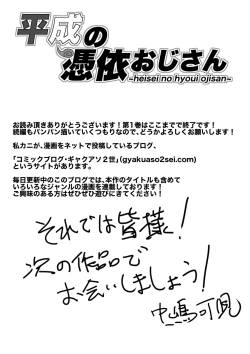 平成の
憑依おじさん
~heisei no hyoui ojisan~
お読み頂きありがとうございます！第1巻はここまでで終了です！
続編もバンバン描いていくつもりなので、どうかよろしくお願いします！
私カニが、漫画をネットで投稿しているブログ、
「コミックブログ・ギャクアソ２世」(gyakuaso2sei.com)
というサイトがあります。
毎日更新中のこのブログでは、本作のタイトルも含めて
いろいろなジャンルの漫画を連載しております！
ご興味のある方はぜひぜひ遊びにきてください！
それでは皆様！
次の作品で
お会いしましょう！